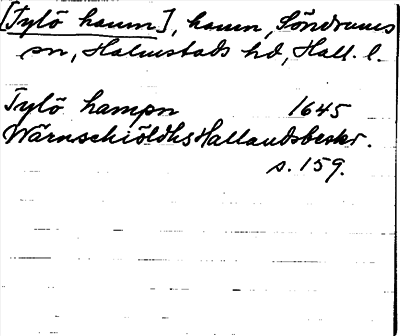 [Tylö hamn], hamn, Söndrums
sn, Halmstads hd, Hall. l.
Tylö hampn 1645
Wärnschiöldhs Hallandsbeskr.
s. 159.